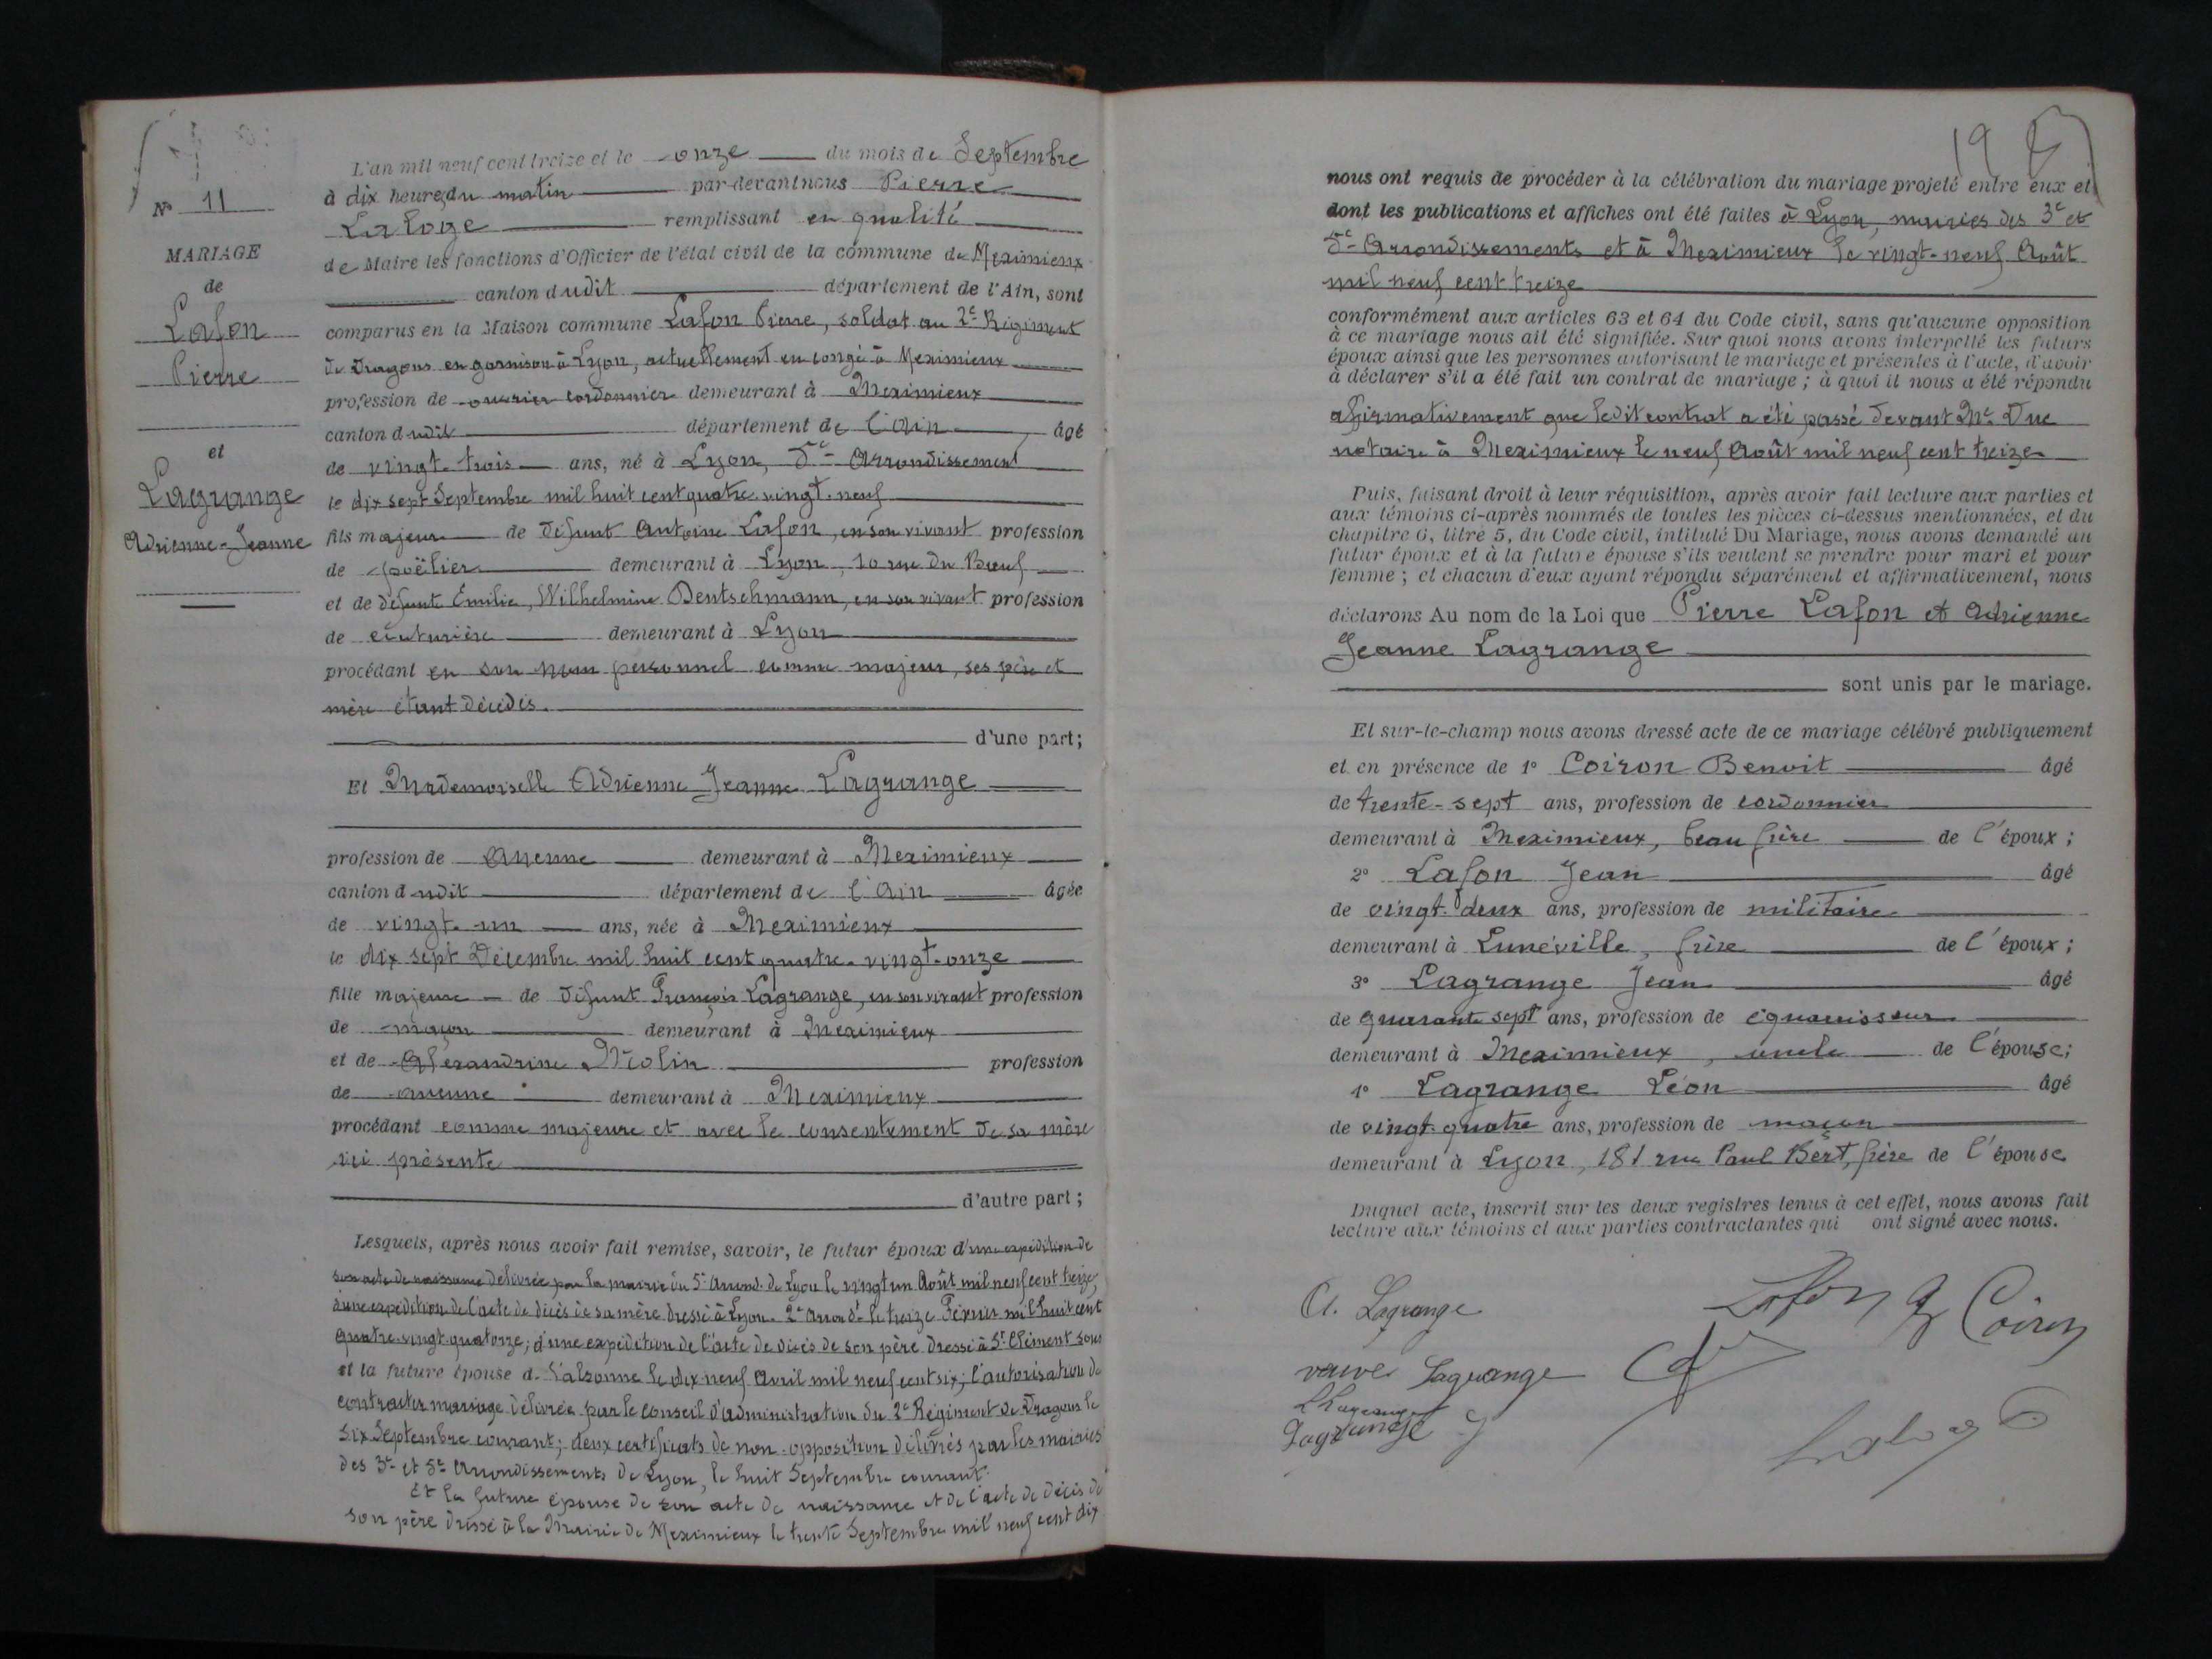 N° 11
MARIAGE
de
Lafon
Pierre
et
Lagrange
Adrienne-Jeanne
L'an mil neuf cent treize et le onze du mois de Septembre
à dix heures du matin par-devant nous Pierre
Laloge remplissant en qualité
de Maire les fonctions d'Officier de l'état civil de la commune de Meximieux
canton dudit département de l'Ain, sont
comparus en la Maison commune Lafon Pierre, soldat au 2e Régiment
de Dragons en garnison à Lyon, actuellement en congé à Meximieux
profession de ouvrier cordonnier demeurant à Meximieux
canton dudit département de l'Ain, âgé
de vingt-trois ans, né à Lyon, 5e Arrondissement
le dix sept Septembre mil huit cent quatre-vingt-neuf
fils majeur de défunt Antoine Lafon, en son vivant profession
de poëlier demeurant à Lyon, 10 rue du Bœuf
et de défunte Émilie, Wilhelmine Dentschmann, en son vivant profession
de couturière demeurant à Lyon
procédant en son nom personnel comme majeur, ses père et
mère étant décédés.
d'une part;
Et Mademoiselle Adrienne Jeanne Lagrange
profession de aucune demeurant à Meximieux
canton dudit département de l'Ain âgée
de vingt-un ans, née à Meximieux
le dix sept Décembre mil huit cent quatre-vingt-onze
fille majeure de défunt François Lagrange, en son vivant profession
de maçon demeurant à Meximieux
et de Alexandrine Molin profession
de aucune demeurant à Meximieux
procédant comme majeure et avec le consentement de sa mère
ici présente
d'autre part;
Lesquels, après nous avoir fait remise, savoir, le futur époux d'une expédition de
son acte de naissance délivrée par la mairie du 5e Arrond. de Lyon le vingt un Août mil neuf cent treize,
d'une expédition de l'acte de décès de sa mère dressé à Lyon 2e Arrondt le treize Février mil huit cent
quatre-vingt quatorze; d'une expédition de l'acte de décès de son père dressé à St Clément sous
et la future épouse d. Valsonne le dix-neuf Avril mil neuf cent six; l'autorisation de
contracter mariage délivrée par le conseil d'administration du 2e Régiment de Dragons le
six Septembre courant; deux certificats de non-opposition délivrés par les mairies
des 3e et 5e Arrondissements de Lyon, le huit Septembre courant.
Et la future épouse de son acte de naissance et de l'acte de décès de
son père dressé à la Mairie de Meximieux le trente Septembre mil neuf cent dix
19
nous ont requis de procéder à la célébration du mariage projeté entre eux et
dont les publications et affiches ont été faites à Lyon, mairies des 3e et
5e Arrondissements et à Meximieux le vingt-neuf Août
mil neuf cent treize
conformément aux articles 63 et 64 du Code civil, sans qu'aucune opposition
à ce mariage nous ait été signifiée. Sur quoi nous avons interpellé les futurs
époux ainsi que les personnes autorisant le mariage et présentes à l'acte, d'avoir
à déclarer s'il a été fait un contrat de mariage; à quoi il nous a été répondu
affirmativement que ledit contrat a été passé devant Me Duc
notaire à Meximieux le neuf Août mil neuf cent treize
Puis, faisant droit à leur réquisition, après avoir fait lecture aux parties et
aux témoins ci-après nommés de toutes les pièces ci-dessus mentionnées, et du
chapitre 6, titre 5, du Code civil, intitulé Du Mariage, nous avons demandé au
futur époux et à la future épouse s'ils veulent se prendre pour mari et pour
femme; et chacun d'eux ayant répondu séparément et affirmativement, nous
déclarons Au nom de la Loi que Pierre Lafon et Adrienne
Jeanne Lagrange
sont unis par le mariage.
Et sur-le-champ nous avons dressé acte de ce mariage célébré publiquement
et en présence de 1° Coiron Benoit âgé
de trente-sept ans, profession de cordonnier
demeurant à Meximieux, beau frère de l'époux;
2° Lafon Jean âgé
de vingt-deux ans, profession de militaire
demeurant à Lunéville, frère de l'époux;
3° Lagrange Jean âgé
de quarante sept ans, profession de équarrisseur
demeurant à Meximieux, oncle de l'épouse;
4° Lagrange Léon âgé
de vingt-quatre ans, profession de maçon
demeurant à Lyon, 181 rue Paul Bert, frère de l'épouse
Duquel acte, inscrit sur les deux registres tenus à cet effet, nous avons fait
lecture aux témoins et aux parties contractantes qui ont signé avec nous.
A. Lagrange
Lafon
Coiron
veuve Lagrange
L Lagrange
Lagrange J
Laloge